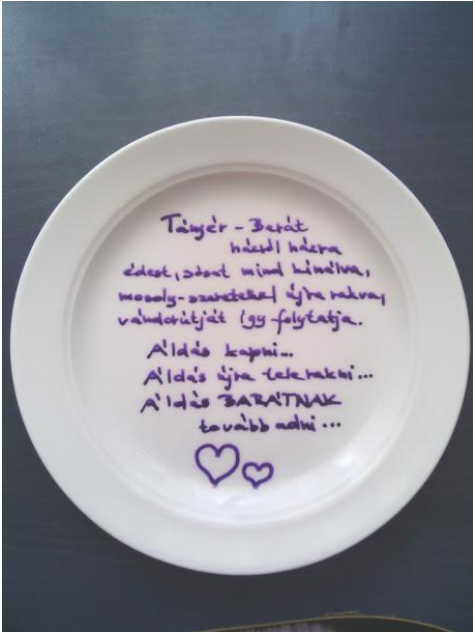 Tányér - Barát
háztól házra
édest, sósat mind kínálva,
mosoly-szeretettel újra rakva,
vándorútját így folytatja.
Áldás kapni...
Áldás újra telerakni...
Áldás BARÁTNAK
tovább adni...